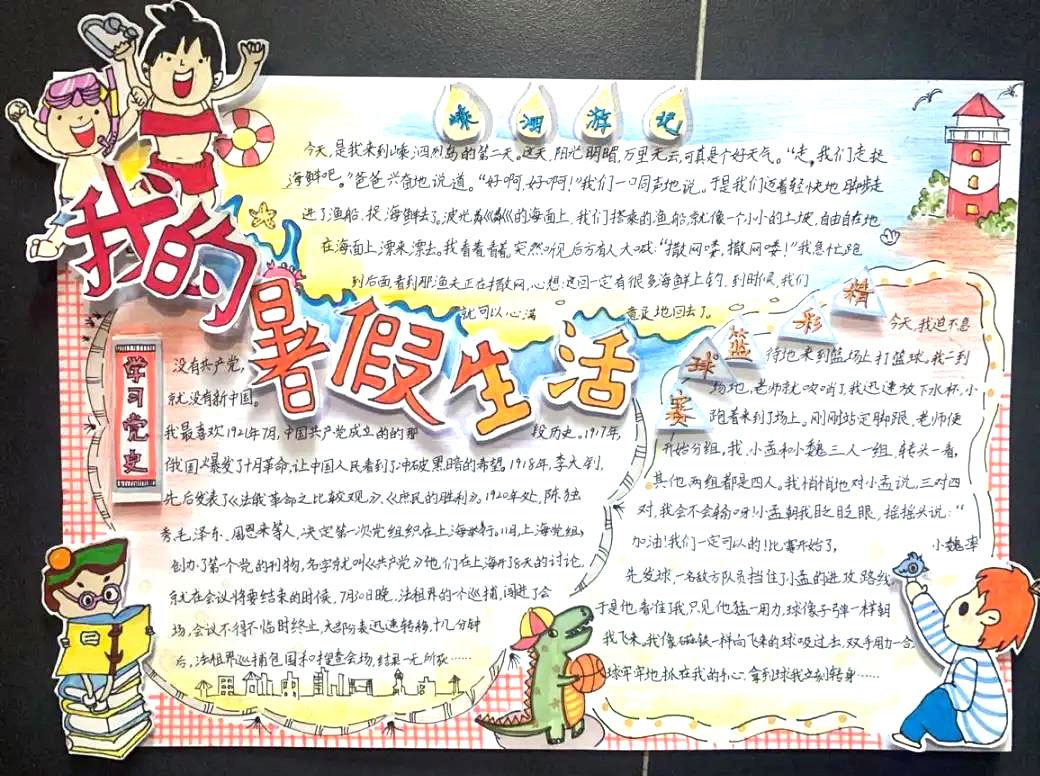 我的
暑假生活
嵊泗游记
今天,是我来到嵊泗列岛的第二天。这天,阳光明晴,万里无云,可真是个好天气。“走,我们去捉
海鲜吧。”爸爸兴奋地说道。“好啊,好啊!”我们一口同声地说。于是我们迈着轻快地脚步走
进了渔船,捉海鲜去了。波光粼粼的海面上,我们搭乘的渔船就像一个小小的土坡,自由自在地
在海面上漂来漂去。我看着看着,突然听见后方有人大喊:“撒网喽,撒网喽!”我急忙跑
到后面看到那渔夫正在撒网,心想:这回一定有很多海鲜上钓,到时候,我们
就可以心满 意足地回去了。
学习党史
没有共产党,
就没有新中国。
我最喜欢1921年7月,中国共产党成立的的那 段历史。1917年,
俄国爆发了十月革命,让中国人民看到了冲破黑暗的希望。1918年,李大钊,
先后发表了《法俄革命之比较观》、《庶民的胜利》。1920年处,陈独
秀毛泽东、周恩来等人,决定第一次党组织在上海举行。11月,上海党组,
创办了第一个党的刊物,名字就叫《共产党》他们在上海开8天的讨论,
就在会议将要结束的时候,7月30日晚,法租界的一个巡捕,闯进了会
场,会议不得不临时终止,大部分表迅速转移,十几分钟
后,法租界巡捕包围和搜查会场,结果一无所获……
精彩篮球赛
今天,我迫不急
待地来到篮场上打篮球。我一到
场地,老师就吹哨了,我迅速放下水杯,小
跑着来到了场上。刚刚站定脚跟,老师便
开始分组,我,小孟和小魏三人一组,转头一看,
其他两组都是四人。我悄悄地对小孟说,三对四
对,我会不会输呀!小孟朝我眨之眨眼,摇摇头说:“
加油!我们一定可以的!比赛开始了, 小魏率
先发球,一名敌方队员挡住了小孟的进攻路线
于是他看准了我,只见他猛一用力,球像子弹一样朝
我飞来,我像磁铁一样向飞来的球吸过去,双手用力一合
球牢牢地抓在我的手心,拿到球我立刻转身……